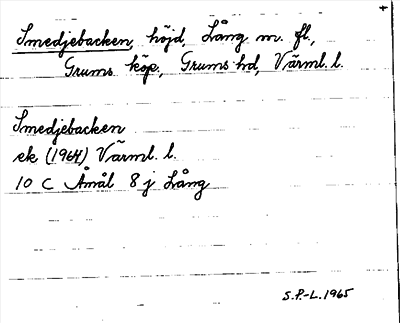 Smedjebacken, höjd, Lång m. fl.,
Grums köp., Grums hd, Värml. l.
Smedjebacken
ek (1964) Värml. l.
10 C Åmål 8 j Lång
S.P.-L. 1965